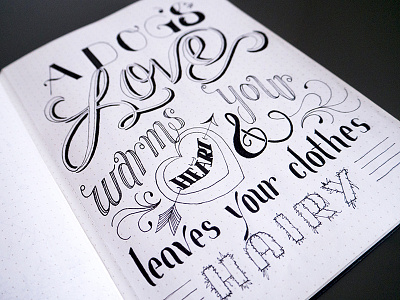 A DOG'S
Love
warms your
HEART &
leaves your clothes
HAIRY